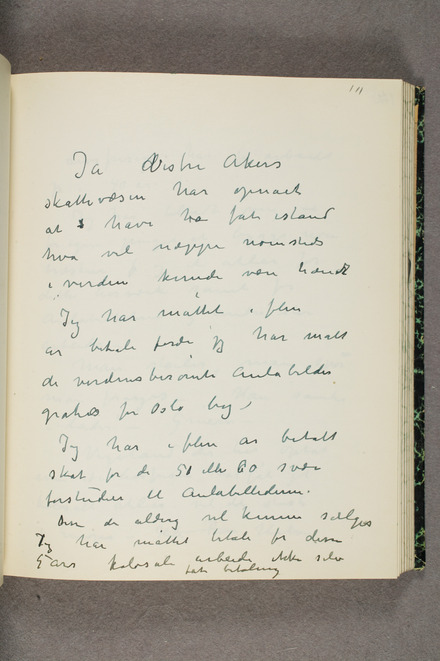 111
Ja Vestre Akers
skattevæsen har opnaet
at have fat istand
hva vel neppe nomsteds
i verden kunde være hændt
Jeg har måttet i flere
ar betale fordi jeg har malt
de verdensberømte Aulabilder
gratis for Oslo by
Jeg har i flere ar betalt
skat for de 50 eller 60 svære
forstudier til Aulabillederne.
Som de aldrig vil kunne sælges
Jeg har måttet betale for disse
5 ars kolosale arbeide ikke selv
fat betaling